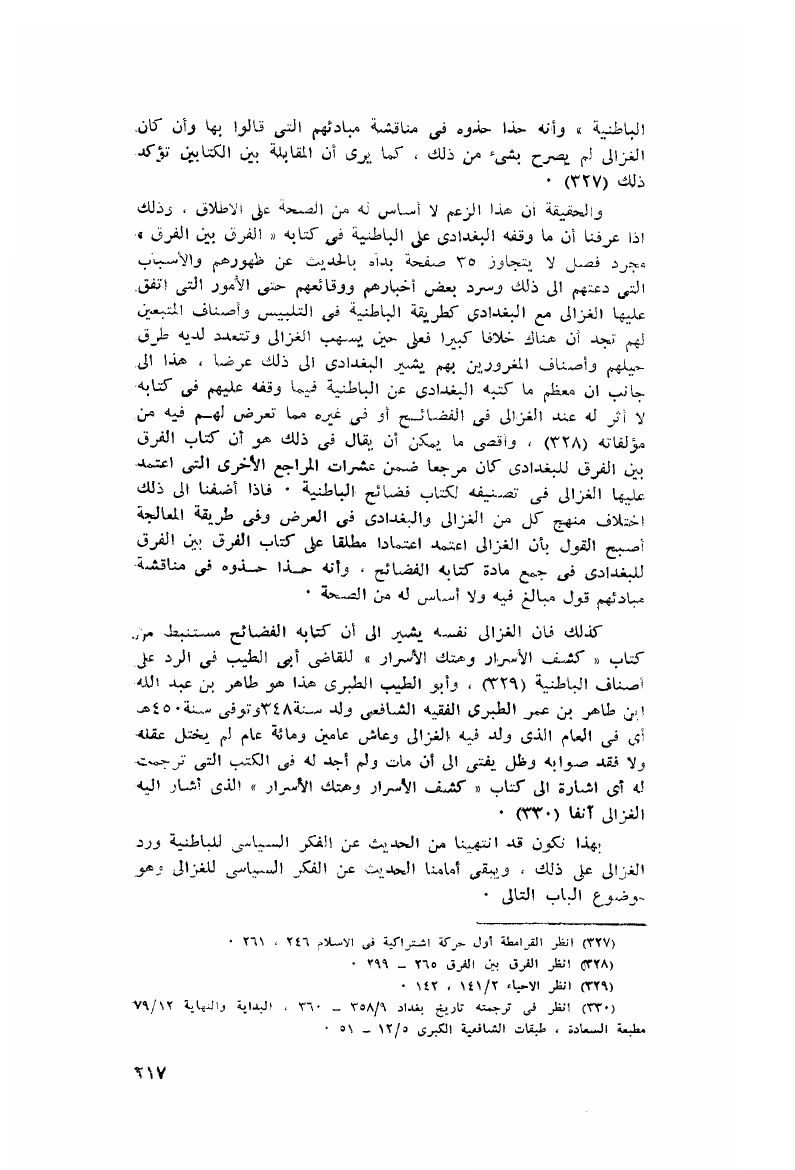 الباطنية » وأنه حذا حذوه فى مناقشة مبادئهم التى قالوا بها وأن كان
الغزالى لم يصرح بشىء من ذلك ، كما يرى أن المقابلة بين الكتابين تؤكد
ذلك (٣٢٧) ٠
والحقيقة أن هذا الزعم لا أساس له من الصحة على الاطلاق ، وذلك
اذا عرفنا أن ما وقفه البغدادى على الباطنية فى كتابه « الفرق بين الفرق »
مجرد فصل لا يتجاوز ٣٥ صفحة بدأه بالحديث عن ظهورهم والأسباب
التى دعتهم الى ذلك وسرد بعض أخبارهم ووقائعهم حتى الأمور التى اتفق
عليها الغزالى مع البغدادى كطريقة الباطنية فى التلبيس وأصناف المتبعين
لهم تجد أن هناك خلافا كبيرا فعلى حين يسهب الغزالى وتتعدد لديه طرق
حيلهم وأصناف المغرورين بهم يشير البغدادى الى ذلك عرضا ، هذا الى
جانب ان معظم ما كتبه البغدادى عن الباطنية فيما وقفه عليهم فى كتابه
لا أثر له عند الغزالى فى الفضائح أو فى غيره مما تعرض لهم فيه من
مؤلفاته (٣٢٨) ، وأقصى ما يمكن أن يقال فى ذلك هو أن كتاب الفرق
بين الفرق للبغدادى كان مرجعا ضمن عشرات المراجع الأخرى التى اعتمد
عليها الغزالى فى تصنيفه لكتاب فضائح الباطنية ٠ فاذا أضفنا الى ذلك
اختلاف منهج كل من الغزالى والبغدادى فى العرض وفى طريقة المعالجة
أصبح القول بأن الغزالى اعتمد اعتمادا مطلقا على كتاب الفرق بين الفرق
للبغدادى فى جمع مادة كتابه الفضائح ، وأنه حذا حذوه فى مناقشة
مبادئهم قول مبالغ فيه ولا أساس له من الصحة ٠
كذلك فان الغزالى نفسه يشير الى أن كتابه الفضائح مستنبط من
كتاب « كشف الأسرار وهتك الأسرار » للقاضى أبى الطيب فى الرد على
أصناف الباطنية (٣٢٩) ، وأبو الطيب الطبرى هذا هو طاهر بن عبد الله
ابن طاهر بن عمر الطبرى الفقيه الشافعى ولد سنة٣٤٨وتوفى سنة٤٥٠هـ
أى فى العام الذى ولد فيه الغزالى وعاش عامين ومائة عام لم يختل عقله
ولا فقد صوابه وظل يفتى الى أن مات ولم أجد له فى الكتب التى ترجمت
له أى اشارة الى كتاب « كشف الأسرار وهتك الأسرار » الذى أشار اليه
الغزالى آنفا (٣٣٠) ٠
بهذا نكون قد انتهينا من الحديث عن الفكر السياسى للباطنية ورد
الغزالى على ذلك ، ويبقى أمامنا الحديث عن الفكر السياسى للغزالى وهو
موضوع الباب التالى ٠
(٣٢٧) انظر القرامطة أول حركة اشتراكية فى الاسلام ٢٤٦ ، ٢٦١ ٠
(٣٢٨) انظر الفرق بين الفرق ٢٦٥ ــ ٢٩٩ ٠
(٣٢٩) انظر الاحياء ١٤١/٢ ، ١٤٢ ٠
(٣٣٠) انظر فى ترجمته تاريخ بغداد ٣٥٨/٩ ــ ٣٦٠ ، البداية والنهاية ٧٩/١٢
مطبعة السعادة ، طبقات الشافعية الكبرى ١٢/٥ ــ ٥١ ٠
٢١٧